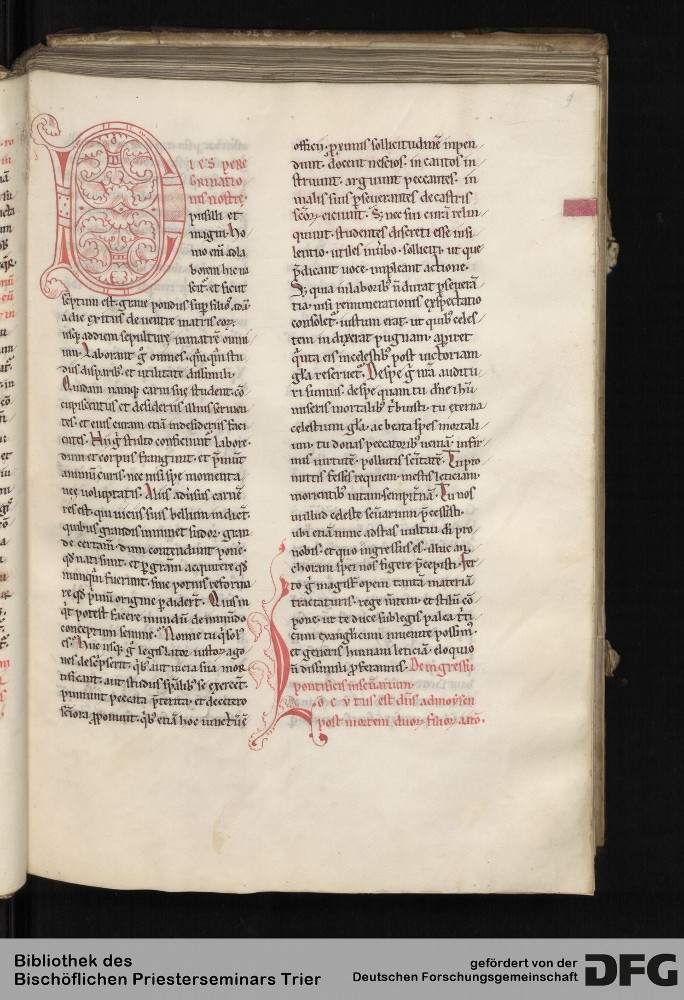 9
DIES PERE
GRINATIO
nis nostre
pusilli et
magni. ho
mo eni ad la
borem hic na
scit. et sicut
sc̄ptum est. graue pondus sup̄ filios adā
a die exitus de uentre matris eoꝝ.
usq̨ ad diem sepulture in matrē omni
um. Laborant g̊ omnes.
diis disparib. et utilitate dissimili.
Quidam namq̨ carni sue student. cō
cupiscentiis et desideriis illius seruien
tes. et eius curam etiā in desideriis faci
entes. Hii g̊ stulto conficiunt labore.
dum et corpus frangunt. et p̄munt
animū curis. nec nisi spe momenta
nee uoluptatis. Aliis aduersus carnē
res est. qui uiciis suis bellum indicūt.
quibus grandis imminet sudor. gran
de certam. dum contendunt ponē.
qd̄ nati sunt. et p̄ gram̄ acquirere qd̄
nunquā fuerunt. siue potius reforma
re qd̄ p̄mū origine p̄didert̄. Quis īn
qt̄ potest facere mundū de inmundo
conceptum semine. Nonne tu q̄ sol
es. Hiic usq̨ g̊ legislator iustoꝝ ago
nes desc̄pserit. qb̄ aut uicia sua mor
tificant. aut studiis sp̄alib se exercēt.
puniunt peccata p̄terita. et de cetero
sc̄iora p̄ponunt. qb̄ etiā hoc iunctū ē
officii. p̄ximis sollicitudinē inpen
dunt. docent nescios. incautos in
struunt. arguunt peccantes. in
malis suis p̄seuerantes de castris
sc̄oꝝ eiciunt. Sꝫ nec sui curā relin
quunt. studentes discreti esse in si
lentio. utiles in uerbo. solliciti ut que
p̄dicant uoce. impleant actione.
Sꝫ quia in laborib n̄ durat p̄seuerā
tia. nisi remunerationis exspectatio
consoletr̄. iustum erat. ut quib celes
tem indixerat pugnam. ap̄iret
q̄nta eis in celestib post uictoriam
gl̄a reseruet. De spe g̊ n̄ra auditu
ri sumus. de spe quam tu dn̄e ih̄u
miseris mortalib t̄buisti. tu eterna
celestium gl̄a. ac beata spes mortali
um. tu donas peccatorib ueniā. infir
mis uirtutē. pollutis sc̄itatē. Tu pro
mittis fessis requiem. mestis leticiam.
morientib uitam sempit̄nā. Tu nos
in illud celeste sc̄uarium p̄cessisti.
ubi etiā nunc adstas uultui di pro
nobis. et quo ingressus es. illuc an
choram spei nos figere p̄cepisti. Fer
to g̊ magist̄ opem tantā materiā
tractaturis. rege m̄tem. et stilū cō
pone. ut te duce sub legis palea t̄ti
cum euangelicum inuenire possim.
et generis humani leticiā. eloquio
n̄ dissimili p̄feramus. De ingressu
pontificis in sc̄uarium.
LOCVTUS est dn̄s ad moysen
post mortem duoꝝ filioꝝ aarō.
Bibliothek des
Bischöflichen Priesterseminars Trier
gefördert von der
Deutschen Forschungsgemeinschaft
DFG